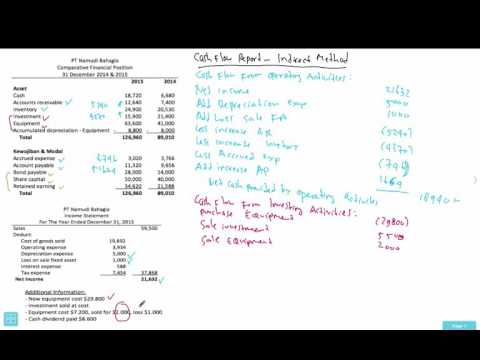 PT Namudi Bahagia
Comparative Financial Position
31 December 2014 & 2015
2015 2014
Asset
Cash 18,720 6,680
Accounts receivable 12,640 7,400
Inventory 24,900 20,530
Investment 15,900 21,400
Equipment 63,600 41,000
Accumulated depreciation - Equipment 8,800 8,000
Total 126,960 89,010
Kewajiban & Modal
Accrued expense 3,020 3,766
Account payable 11,320 9,656
Bond payable 28,000 14,000
Share capital 50,000 40,000
Retained earning 34,620 21,588
Total 126,960 89,010
PT Namudi Bahagia
Income Statement
For The Year Ended December 31, 2015
Sales 59,500
Deduct:
Cost of goods sold 19,892
Operating expense 3,934
Depreciation expense 5,000
Loss on sale fixed asset 1,000
Interest expense 588
Tax expense 7,454 37,868
Net Income 21,632
Additional Information:
- New equipment cost $29.800
- Investment sold at cost
- Equipment cost $7.200, sold for $2.000, loss $1.000
- Cash dividend paid $8.600
Cash Flow Report - Indirect Method
Cash Flow From Operating Activities:
Net Income 21632
Add Depreciation Exp 5000
Add Loss Sale 1000
Less increase AR (5240)
Less increase Inventory (4370)
Less Accrued Exp
Add increase AP 1664
Net Cash provided by operating Activities
Cash Flow From Investing Activities:
Purchase Equipment (29800)
Sale investment
Sale Equipment 2000